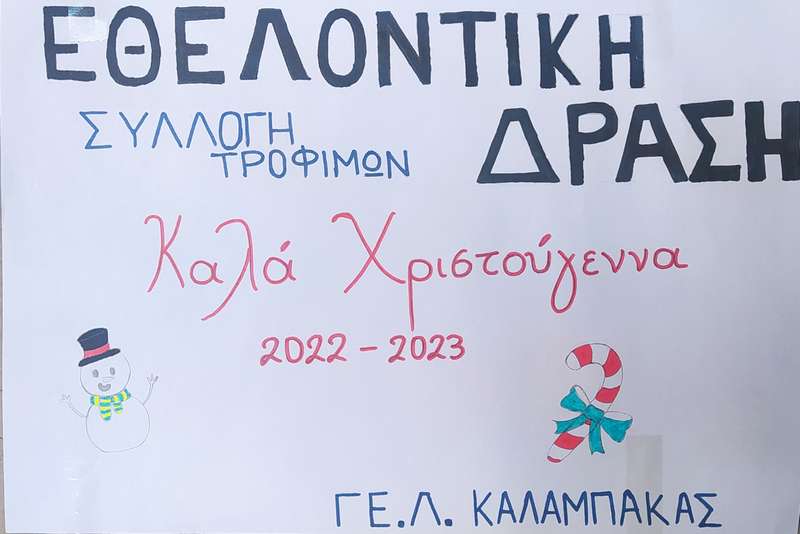 ΕΘΕΛΟΝΤΙΚΗ
ΔΡΑΣΗ
ΣΥΛΛΟΓΗ
ΤΡΟΦΙΜΩΝ
Καλά Χριστούγεννα
2022 - 2023
ΓΕ.Λ. ΚΑΛΑΜΠΑΚΑΣ